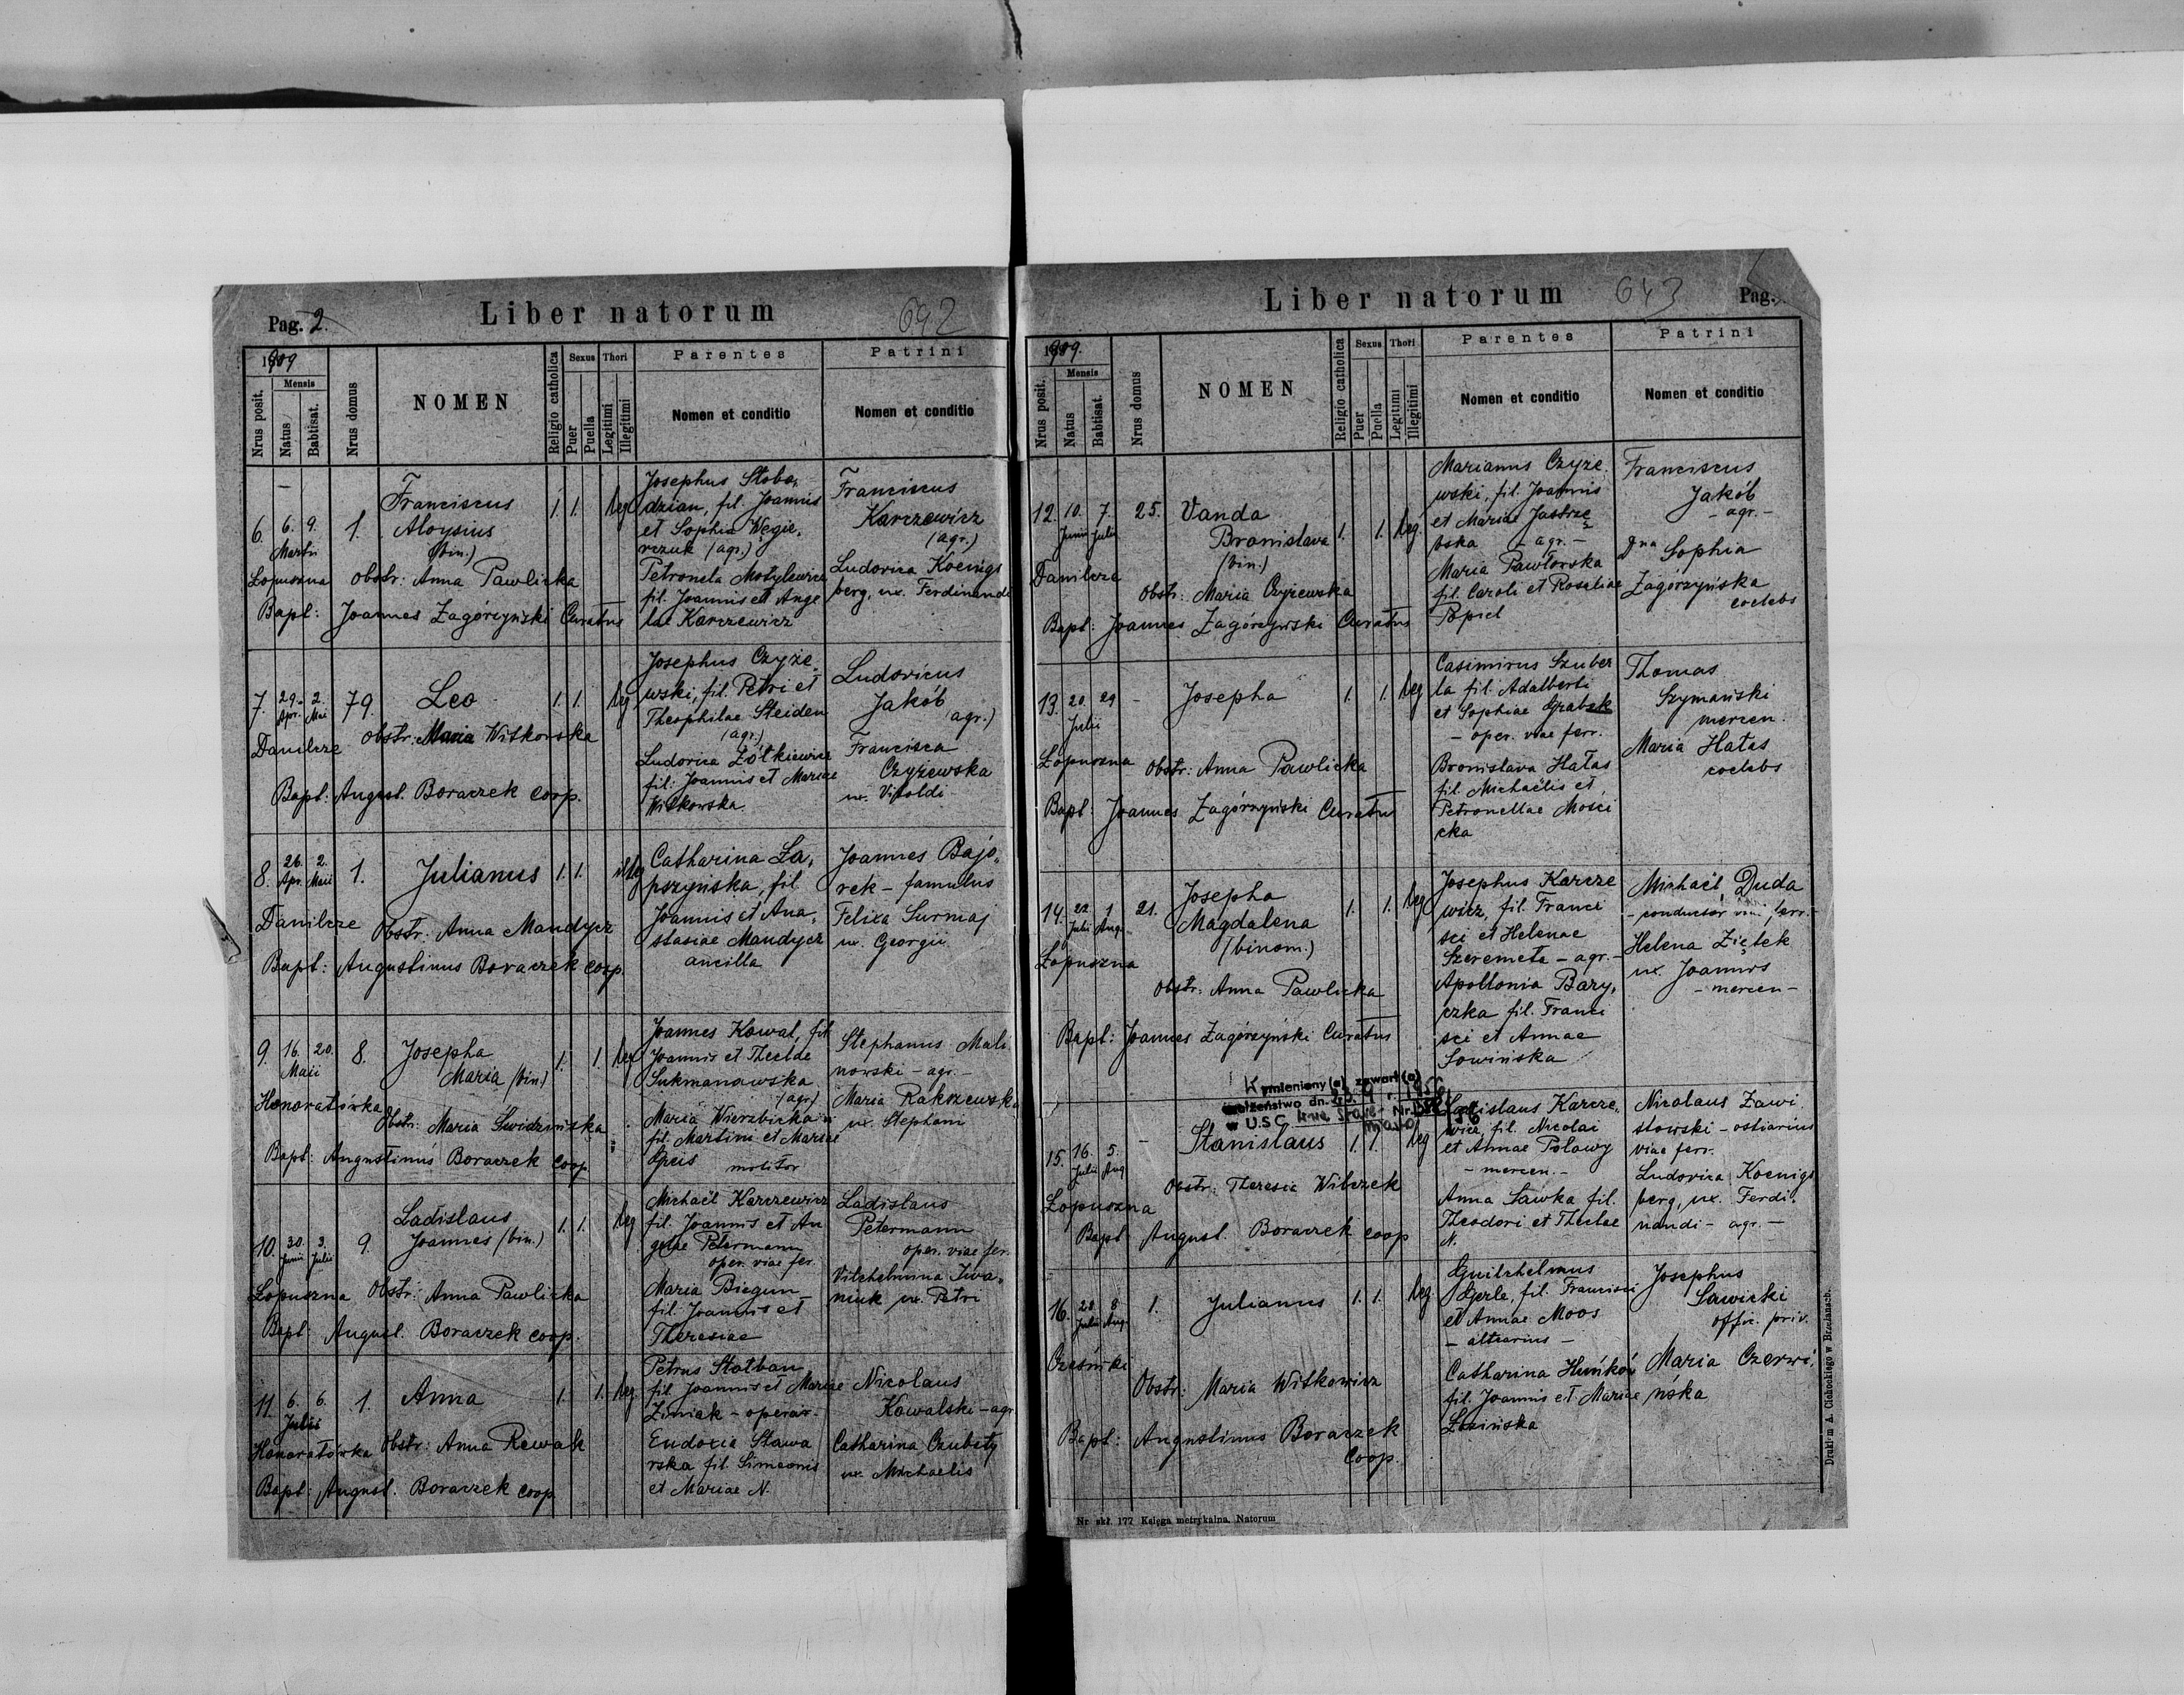 Pag. 2.
Liber natorum
692
1909
Nrus posit.
Mensis
Natus
Babtisat.
Nrus domus
NOMEN
Religio catholica
Sexus
Puer
Puella
Thori
Legitimi
Illegitimi
Parentes
Nomen et conditio
Patrini
Nomen et conditio
6. 6. 9. Martii 1.
Franciscus
Aloysius
(bin.)
1. 1. leg
Josephus Słobo„
dzian, fil. Joannis
et Sophia Węgie„
rczuk (agr.)
Petronela Motylewicz
fil. Joannis et Ange
lae Karczewicz
Franciscus
Karczewicz
(agr.)
Ludovica Koenigs
berg, ux. Ferdinandi
Łopuszna obstr: Anna Pawlicka
Bapt: Joannes Zagórzyński Curatus
7. 29. Apr. 2. Mai 79.
Leo
1. 1. leg
Josephus Czyże„
wski, fil. Petri et
Theophilae Steiden
(agr.)
Ludovica Żółkiewicz
fil. Joannis et Mariae
Witkowska.
Ludovicus
Jakób
agr.)
Francisca
Czyżewska
ux. Vitoldi
Danilcze obstr: Maria Witkowska
Bapt: August. Boraczek coop.
8. 26. Apr. 2. Maii 1.
Julianus
1. 1. illeg
Catharina Ła„
pszyńska, fil.
Joannis et Ana„
stasiae Mandycz
ancilla
Joannes Bajo„
rek - famulus
Felixa Surmaj
ux. Georgii
Danilcze Obstr: Anna Mandycz
Bapt: Augustinus Boraczek coop.
9. 16. 20. Maii 8.
Josepha
Maria (bin.)
1. 1. leg
Joannes Kowal, fil
Joannis et Theclae
Sukmanowska
(agr.)
Maria Wierzbicka
fil. Martini et Mariae
Greis molitor
Stephanus Mali
nowski - agr. -
Maria Rakszewska
ux. Stephani
Honoratówka
Obstr: Maria Swidzinińska
Bapt: Augustinus Boraczek coop
10. 30. Junii 3. Julii 9.
Ladislaus
Joannes (bin.)
1. 1. leg
Michaël Karczewicz
fil. Joannis et An
gelae Petermann
oper. viae fer.
Maria Biegun
fil. Joannis et
Theresiae
Ladislaus
Petermann
oper. viae fer.
Vilhelmina Iwa„
niuk ux. Petri
Łopuszna Obstr: Anna Pawlicka
Bapt: August. Boraczek coop.
11. 6. 6. Julii 1.
Anna
1. 1. leg
Petrus Stotban
fil. Joannis et Mariae
Ziniak - operar.
Eudoxia Stawa
rska fil. Simeonis
et Mariae N.
Nicolaus
Kowalski - agr
Catharina Czubaty
ux. Michaelis
Honoratówka Obstr: Anna Rewak
Bapt: August. Boraczek coop
Liber natorum
643
Pag.
1909.
Nrus posit.
Mensis
Natus
Babtisat.
Nrus domus
NOMEN
Religio catholica
Sexus
Puer
Puella
Thori
Legitumi
Illegitimi
Parentes
Nomen et conditio
Patrini
Nomen et conditio
12. 10. Junii 7. Julii 25.
Vanda
Bronislava
(bin.)
1. 1. leg.
Marianus Czyże„
wski, fil. Joannis
et Mariae Jastrzę„
bska - agr. -
Maria Pawłowska
fil. Caroli et Rosaliae
Popiel
Franciscus
Jakób
- agr. -
Dna Sophia
Zagórzyńska
coelebs
Danilcze
Obstr: Maria Czyżewska
Bapt: Joannes Zagórzyński Curatus
13. 20. 29 Julii -
Josepha
1. 1. leg
Casimirus Szuber
la fil. Adalberti
et Sophiae Grabek
- oper. viae ferr.
Bronislava Hałas
fil. Michaëlis et
Petronellae Mości
cka
Thomas
Szymański
mercen.
Maria Hałas
coelebs
Łopuszna Obstr: Anna Pawlicka
Bapt Joannes Zagórzyński Curatus
14. 22. Julii 1 Aug. 21.
Josepha
Magdalena
(binom.)
1. 1. leg
Josephus Karcze
wicz, fil. Franci
sci et Helenae
Szeremeta - agr. -
Apollonia Bary„
czka fil. Franci
sci et Annae
Sowińska
Michaël Duda
- conductor viae ferr. -
Helena Ziętek
ux. Joannis
- mercen -
Łopuszna
Obstr: Anna Pawlicka
Bapt: Joannes Zagórzyński Curatus
Wymieniony (a) zawarł (a)
małżeństwo dn.
w U.S.C.
15. 16. Julii 5. Aug -
Stanislaus
1. 1. leg
Ladislaus Karcze„
wicz, fil. Nicolai
et Annae Połowy
- mercen. -
Anna Sawka fil.
Theodori et Theclae
N.
Nicolaus Zawi
stowski - ostiarius
viae ferr.
Ludovica Koenigs
berg, ux. Ferdi„
nandi - agr. -
Obstr: Theresia Wilczek
Łopuszna
Bapt August. Boraczek coop
16. 28. Julii 8 Aug. 1.
Julianus
1. 1. leg
Guilhelmus
Gerle, fil. Francisci
et Annae Moos
- altiarius -
Catharina Huńków
fil. Joannis et Mariae
Łozińska
Josephus
Sawicki
offic. priv.
Maria Czerwi„
ńska
Cześniki
Obstr: Maria Witkowicz
Bapt: Augustinus Boraczek
Coop.
Nr. skł. 177 Księga metrykalna. Natorum
Drukiem A. Cichockiego w Brzeżanach.